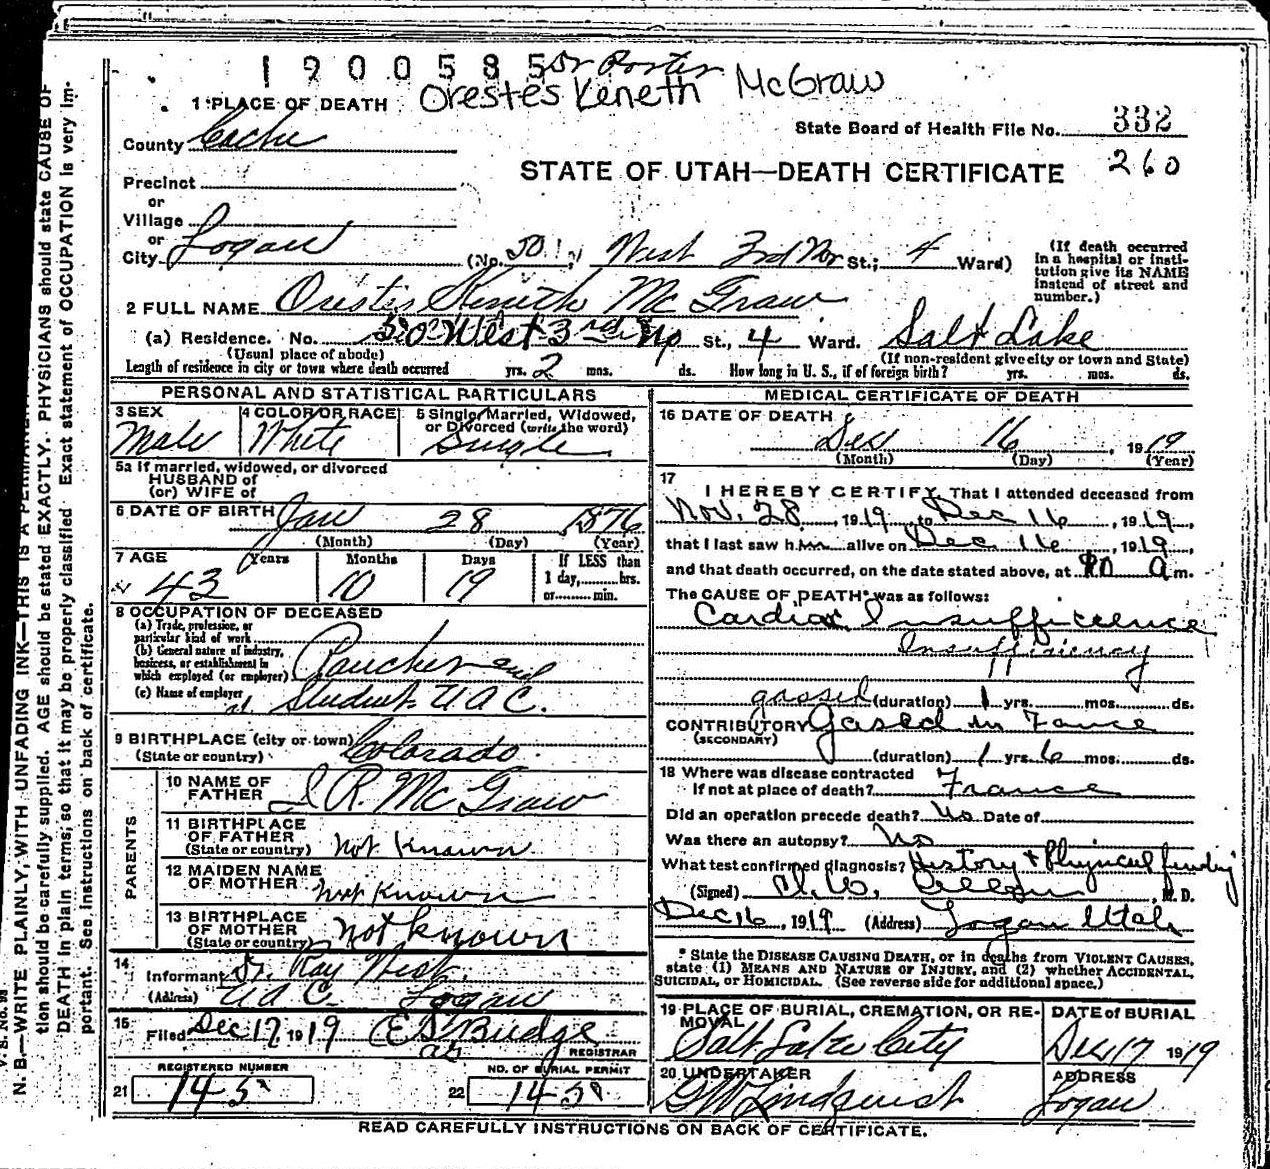 1900585 Dr Porter
Orestes Keneth McGraw
1 PLACE OF DEATH
State Board of Health File No. 332
County Cache
260
STATE OF UTAH—DEATH CERTIFICATE
Precinct
or
Village
or
City Logan (No. 501, West 3rd Nor St.; 4 Ward)
(If death occurred in a hospital or institution give its NAME instead of street and number.)
2 FULL NAME Orestis Kenith Mc Graw
(a) Residence. No. West 3rd No St., 4 Ward. Salt Lake
(Usual place of abode) (If non-resident give city or town and State)
Length of residence in city or town where death occurred yrs. 2 mos. ds. How long in U. S., if of foreign birth? yrs. mos. ds.
PERSONAL AND STATISTICAL PARTICULARS
3 SEX 4 COLOR OR RACE 5 Single, Married, Widowed, or Divorced (write the word)
Male White Single
5a If married, widowed, or divorced
HUSBAND of
(or) WIFE of
6 DATE OF BIRTH Jan 28 1876
(Month) (Day) (Year)
7 AGE Years Months Days If LESS than
1 day,......hrs.
or......min.
43 10 19
8 OCCUPATION OF DECEASED
(a) Trade, profession, or particular kind of work
(b) General nature of industry, business, or establishment in which employed (or employer) Rancher and
(c) Name of employer at Student U A C.
9 BIRTHPLACE (city or town)
(State or country) Colorado.
PARENTS
10 NAME OF FATHER R. Mc Graw
11 BIRTHPLACE OF FATHER
(State or country) Not Known
12 MAIDEN NAME OF MOTHER Not Known
13 BIRTHPLACE OF MOTHER
(State or country) Not known
14
Informant Dr. Ray West.
(Address) U A C. Logan
15
Filed Dec 17, 1919 E S Budge
REGISTRAR
REGISTERED NUMBER NO. OF BURIAL PERMIT
21 145 22 145
MEDICAL CERTIFICATE OF DEATH
16 DATE OF DEATH
Dec 16, 1919
(Month) (Day) (Year)
17
I HEREBY CERTIFY, That I attended deceased from
Nov. 28, 1919, to Dec 16, 1919,
that I last saw him alive on Dec 16, 1919,
and that death occurred, on the date stated above, at a m.
The CAUSE OF DEATH* was as follows:
Cardiac Insufficience
Insufficiency
gassed (duration) 1 yrs. mos. ds.
CONTRIBUTORY Gased in France
(SECONDARY)
(duration) 1 yrs. 6 mos. ds.
18 Where was disease contracted
If not at place of death? France
Did an operation precede death? No Date of
Was there an autopsy? No
What test confirmed diagnosis? History & Physical finding
(Signed) M. D.
Dec 16, 1919 (Address) Logan Utah
* State the DISEASE CAUSING DEATH, or in deaths from VIOLENT CAUSES, state (1) MEANS AND NATURE OF INJURY, and (2) whether ACCIDENTAL, SUICIDAL, or HOMICIDAL. (See reverse side for additional space.)
19 PLACE OF BURIAL, CREMATION, OR REMOVAL DATE of BURIAL
Salt Lake City Dec 17 1919
20 UNDERTAKER ADDRESS
G W Lindquist Logan
READ CAREFULLY INSTRUCTIONS ON BACK OF CERTIFICATE.
V. S. No. 98
N. B.—WRITE PLAINLY, WITH UNFADING INK—THIS IS A
tion should be carefully supplied. AGE should be stated EXACTLY. PHYSICIANS should state CAUSE OF
DEATH in plain terms, so that it may be properly classified. Exact statement of OCCUPATION is very im-
portant. See instructions on back of certificate.